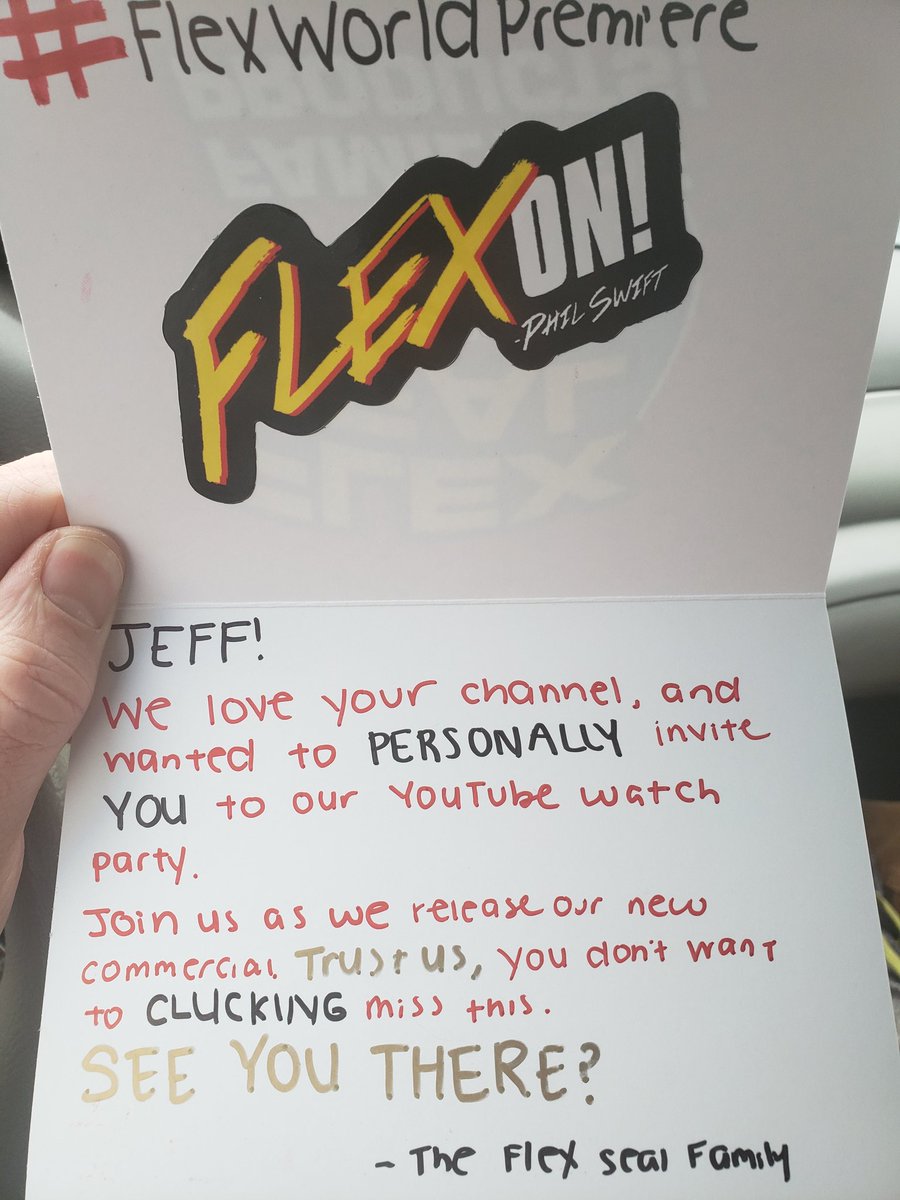 #FlexWorldPremiere
FLEX ON!
-PHIL SWIFT
JEFF!
We love your channel, and
wanted to PERSONALLY invite
YOU to our YouTube watch
party.
Join us as we release our new
commercial. Trust us, you don't want
to CLUCKING miss this.
SEE YOU THERE?
- The Flex Seal Family